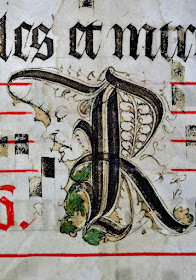 les et mır
R
s.